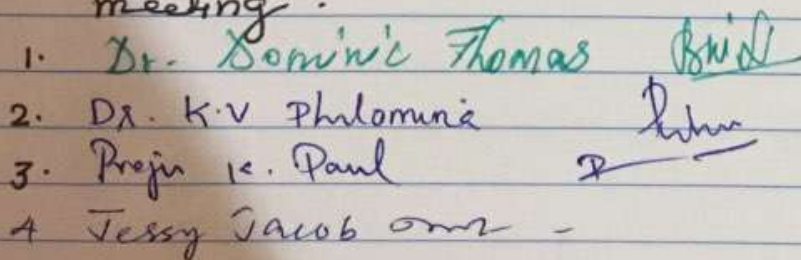 meeting.
1. Dr. Dominic Thomas
2. Dr. K.V Philomina
3. Preju K. Paul
4 Jessy Jacob